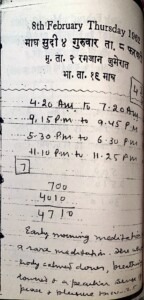 8th February Thursday
माघ सुदी ४ गुरुवार ता. ८
मु. ता. १ रमजान जुमेरात
भा. ता. १९ माघ
4.20 Am to 7.20 Am
9.15 P.m to 9.45 P.m
5-30 Pm to 6-30 Pm
11.10 Pm to 11-25 Pm
7
700
4010
4710
Early morning meditation
a rare meditation.
body calms down,
and a peculiar
peace